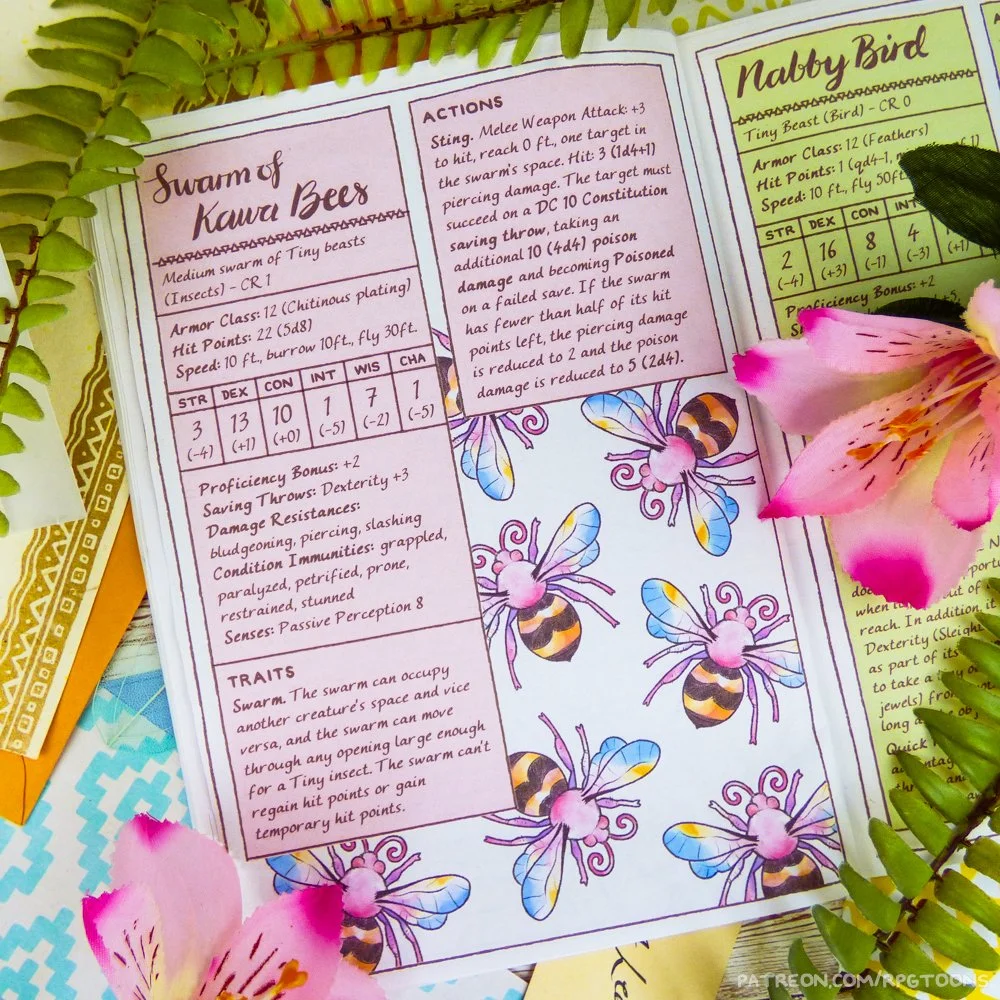 Swarm of
Kawa Bees
Medium swarm of Tiny beasts
(Insects) - CR 1
Armor Class: 12 (Chitinous plating)
Hit Points: 22 (5d8)
Speed: 10 ft., burrow 10ft., fly 30ft.
STR DEX CON INT WIS CHA
3 13 10 1 7 1
(-4) (+1) (+0) (-5) (-2) (-5)
Proficiency Bonus: +2
Saving Throws: Dexterity +3
Damage Resistances:
bludgeoning, piercing, slashing
Condition Immunities: grappled,
paralyzed, petrified, prone,
restrained, stunned
Senses: Passive Perception 8
TRAITS
Swarm. The swarm can occupy
another creature's space and vice
versa, and the swarm can move
through any opening large enough
for a Tiny insect. The swarm can't
regain hit points or gain
temporary hit points.
ACTIONS
Sting. Melee Weapon Attack: +3
to hit, reach 0 ft., one target in
the swarm's space. Hit: 3 (1d4+1)
piercing damage. The target must
succeed on a DC 10 Constitution
saving throw, taking an
additional 10 (4d4) poison
damage and becoming Poisoned
on a failed save. If the swarm
has fewer than half of its hit
points left, the piercing damage
is reduced to 2 and the poison
damage is reduced to 5 (2d4).
Nabby Bird
Tiny Beast (Bird) - CR 0
Armor Class: 12 (Feathers)
Hit Points: 1 (qd4-1,
Speed: 10 ft., fly 50ft.
STR DEX CON INT
2 16 8 4
(-4) (+3) (-1) (-3) (+1)
Proficiency Bonus: +2
when it out of
reach. In addition, it
Dexterity (Sleight
as part of its
to take a
jewels) from
long as
Quick
PATREON.COM/RPGTOONS